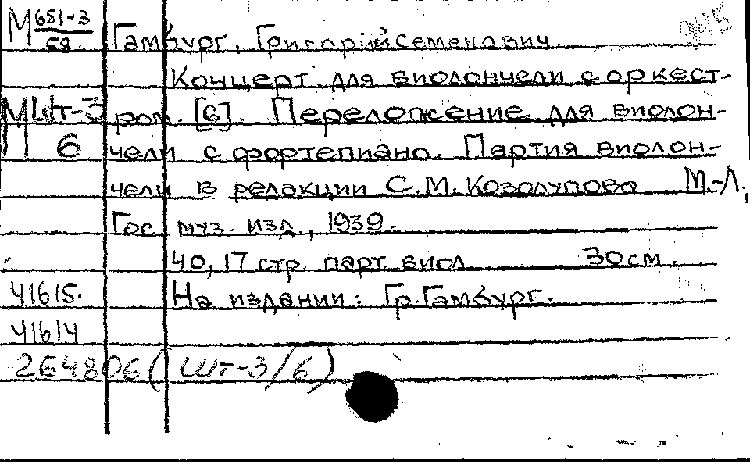 М 651-3/58 Гамбург, Григорий Семенович
Концерт для виолончели с оркест-
М Шт-3 ром. [G]. Переложение для виолон-
6 чели с фортепиано. Партия виолон-
чели в редакции С.М. Козолупова М.-Л.,
Гос. муз. изд., 1939.
40, 17 стр. парт. виол. 30 см.
41615. На издании: Гр. Гамбург.
41614
264806 (Шт-3/6)